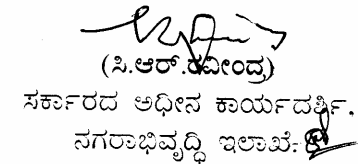 (ಸಿ.ಆರ್.ರವೀಂದ್ರ)
ಸರ್ಕಾರದ ಅಧೀನ ಕಾರ್ಯದರ್ಶಿ,
ನಗರಾಭಿವೃದ್ಧಿ ಇಲಾಖೆ.